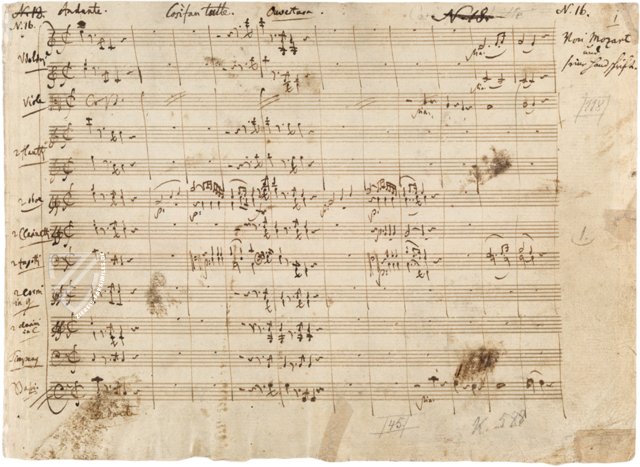 N. 18. Andante. Così fan tutte. Ouvertura. N. 18. N. 16.
N. 16.
1
Von Mozart
und
seiner Handschrift.
Violini
Viole
2 Flauti
2 Oboe
2 Clarinetti
2 Fagotti
2 Corni
in G
2 clarini
in C.
Timpany
Bassi
[118]
1.
[45]
K. 588